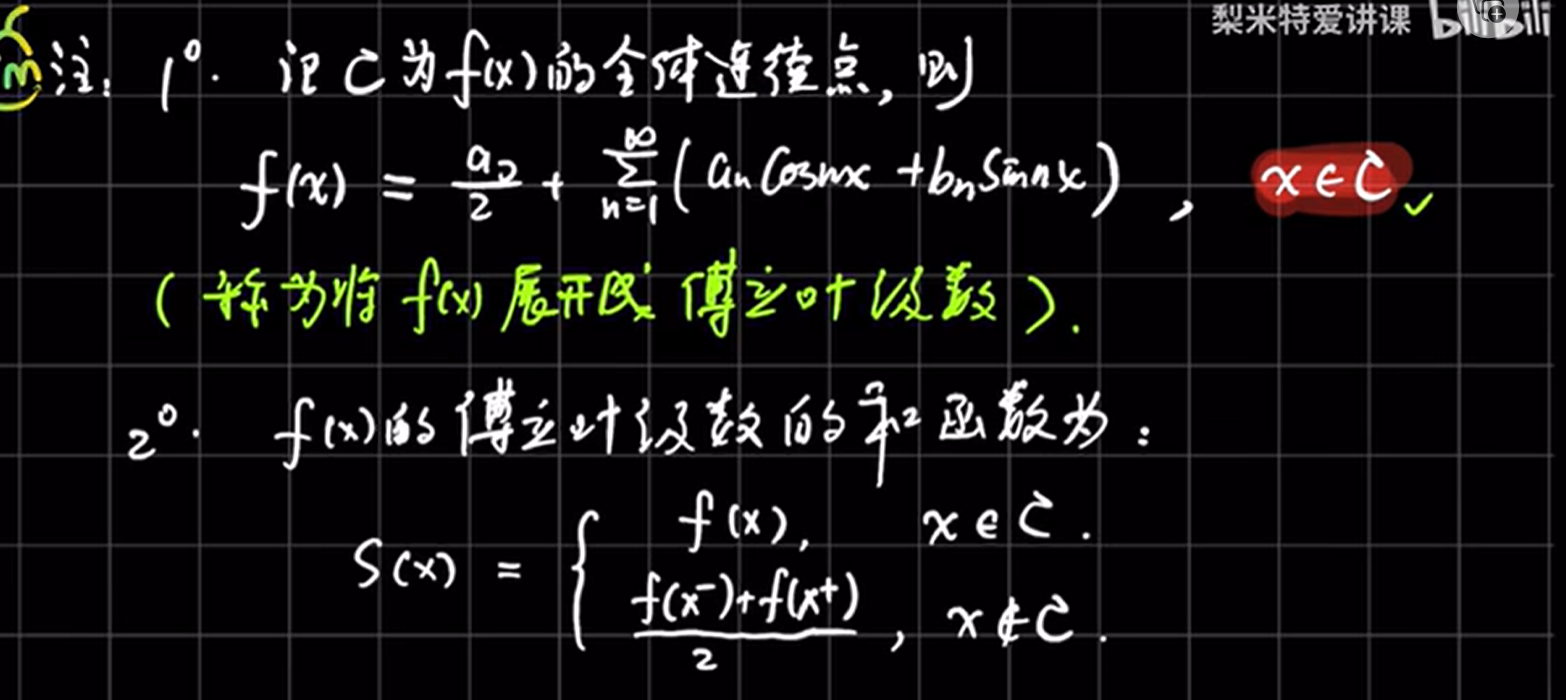 梨米特爱讲课 bilibili
注: 1⁰. 记 C 为 f(x) 的全体连续点, 则
f(x) = a₀/2 + ∑_{n=1}^{∞} (aₙ cos nx + bₙ sin nx) , x ∈ C ✓
(称为将 f(x) 展开成 傅立叶级数).
2⁰. f(x) 的傅立叶级数的和函数为:
S(x) = { f(x), x ∈ C.
(f(x⁻)+f(x⁺))/2 , x ∉ C.